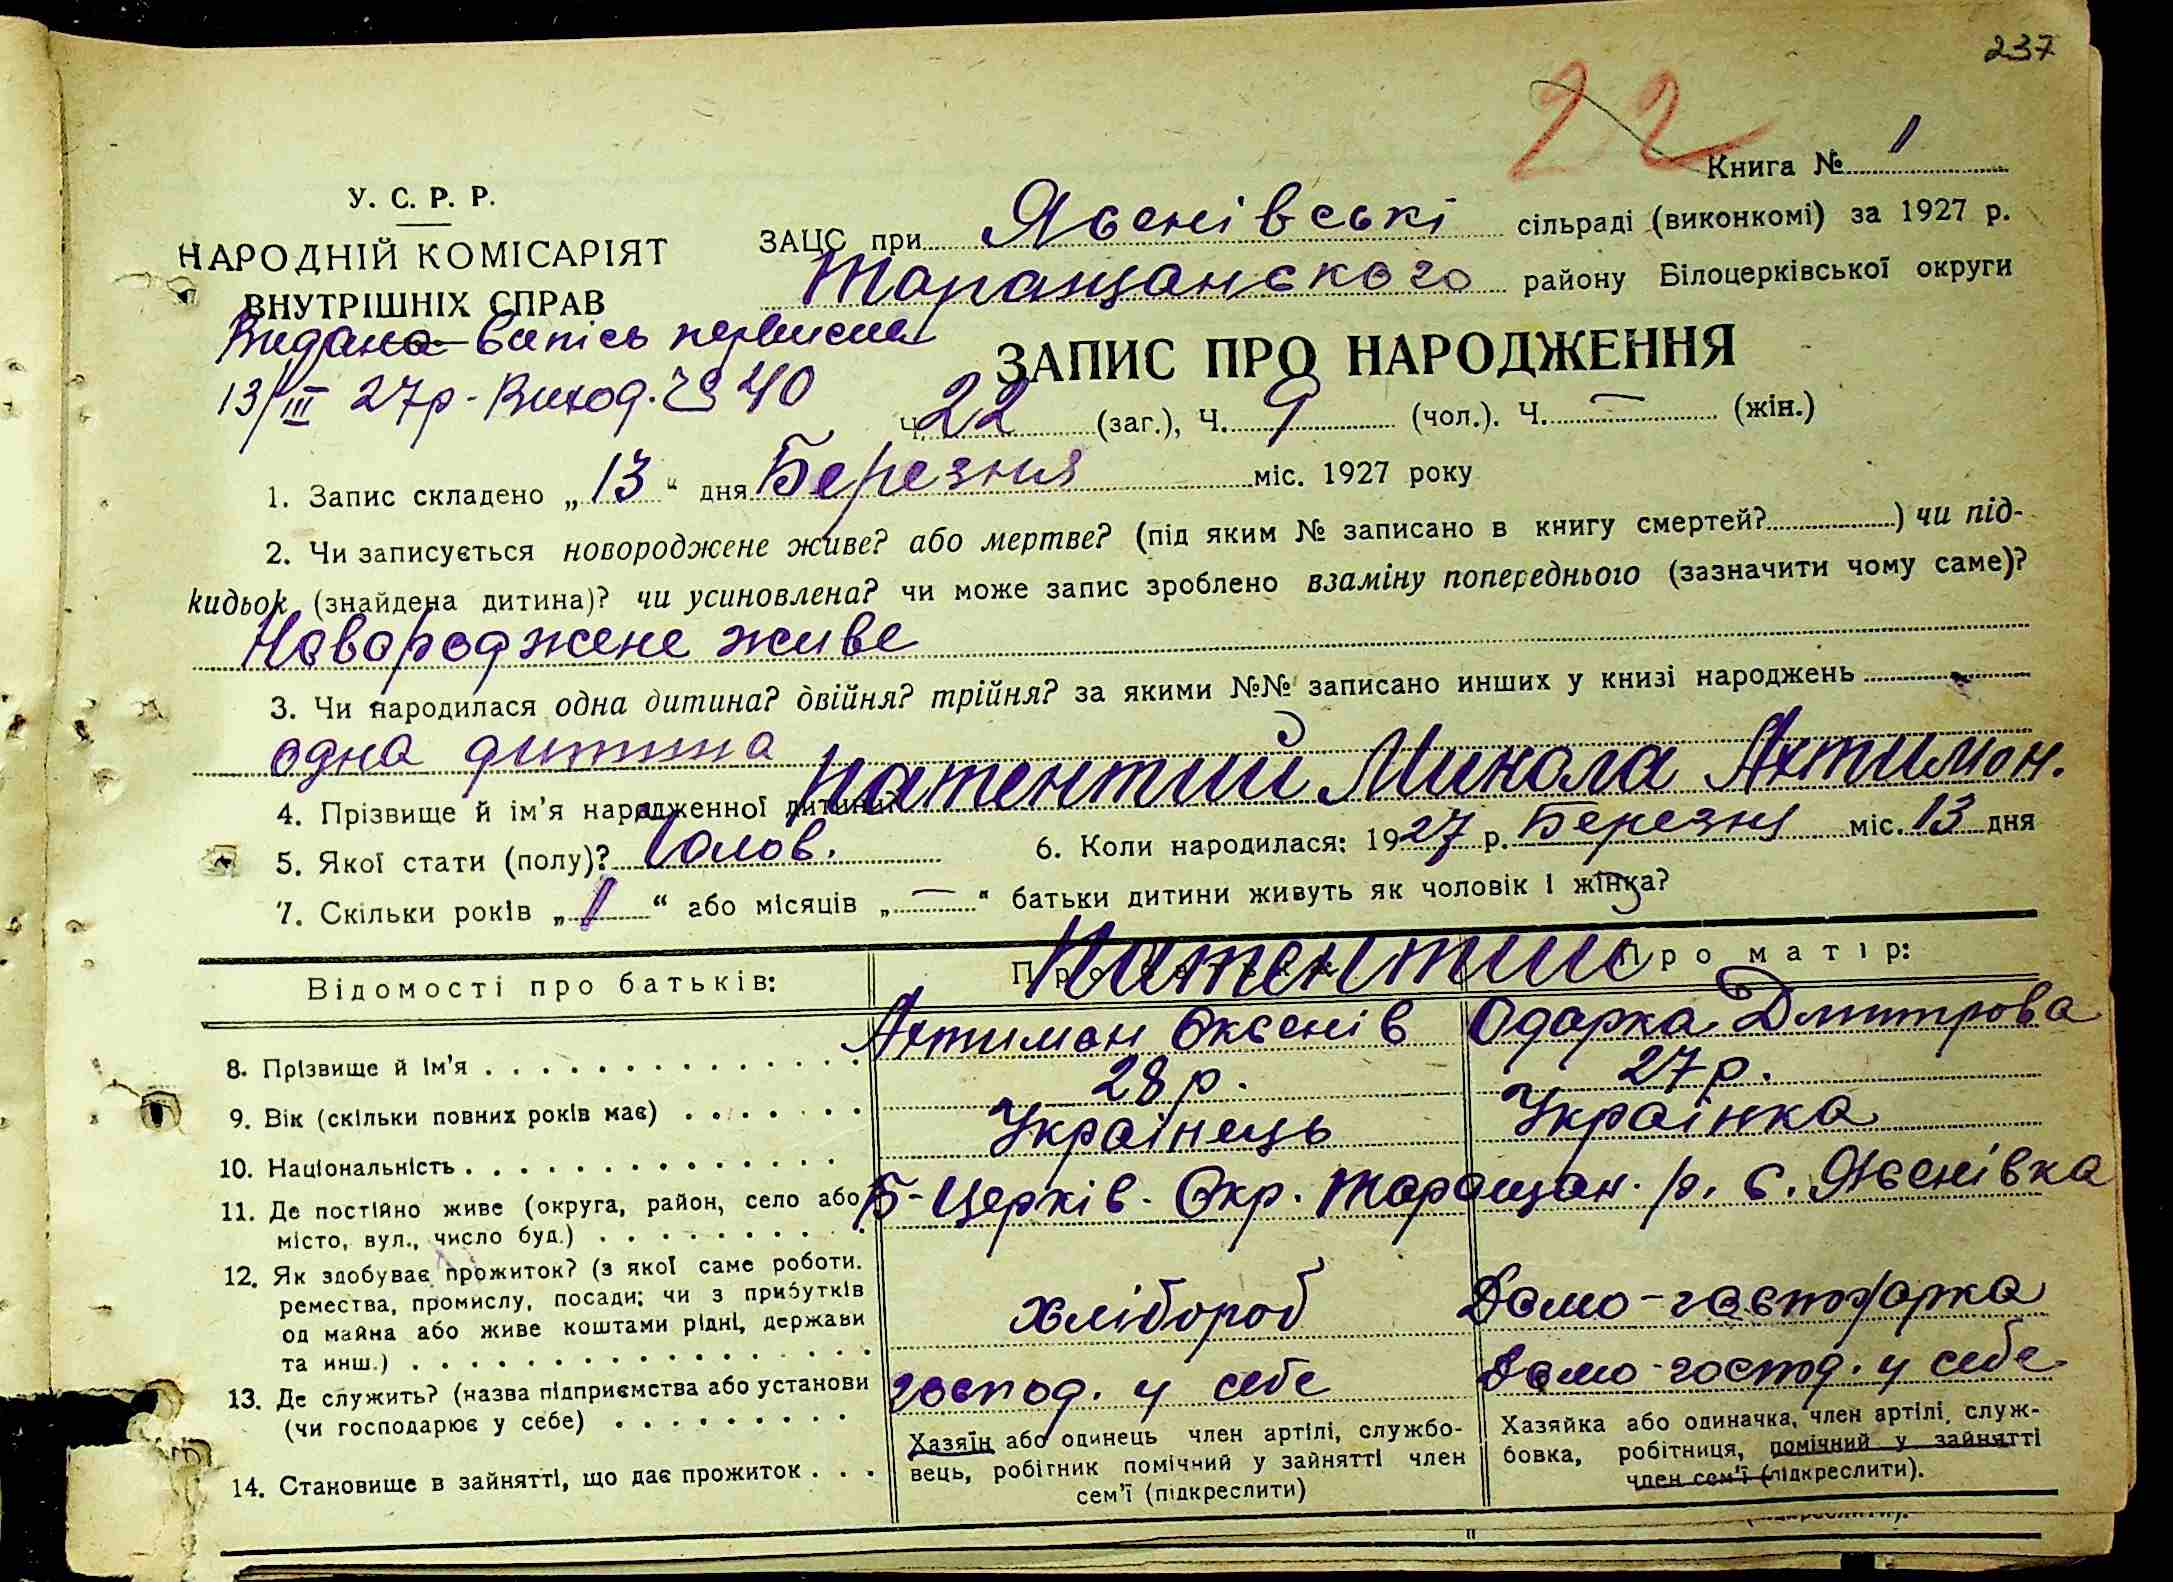 237
22
Книга № 1
У. С. Р. Р.
НАРОДНІЙ КОМІСАРІЯТ
ВНУТРІШНІХ СПРАВ
ЗАЦС при Ясенівські сільраді (виконкомі) за 1927 р.
Таращанського району Білоцерківської округи
Видана випісь
13/III 27р - Виход. № 40
ЗАПИС ПРО НАРОДЖЕННЯ
Ч. 22 (заг.), Ч. 9 (чол.). Ч. — (жін.)
1. Запис складено „ 13 “ дня Березня міс. 1927 року
2. Чи записується новороджене живе? або мертве? (під яким № записано в книгу смертей? ) чи під-
кидьок (знайдена дитина)? чи усиновлена? чи може запис зроблено взаміну попереднього (зазначити чому саме)?
Новороджене живе
3. Чи народилася одна дитина? двійня? трійня? за якими №№ записано инших у книзі народжень
одна дитина
4. Прізвище й ім’я народженної дитини Патентий Микола Ахтимон.
5. Якої стати (полу)? Чолов. 6. Коли народилася: 1927 р. Березня міс. 13 дня
7. Скільки років „ 1 “ або місяців „ — “ батьки дитини живуть як чоловік і жінка?
Відомості про батьків: Про батька: Про матір:
Патентии
8. Прізвище й ім’я Ахтимон Оксенів Одарка Дмитрова
9. Вік (скільки повних років має) 28 р. 27 р.
10. Національність Українець Українка
11. Де постійно живе (округа, район, село або
місто, вул., число буд.) Б-Церків. Окр. Таращан. р. с. Ясенівка
12. Як здобуває прожиток? (з якої саме роботи.
ремества, промислу, посади; чи з прибутків
од майна або живе коштами рідні, держави
та инш.) хлібороб Домо-господарка
13. Де служить? (назва підприємства або установи
(чи господарює у себе) господ. у себе Домо-господ. у себе
14. Становище в зайнятті, що дає прожиток
Хазяїн або одинець член артілі, службо-
вець, робітник помічний у зайнятті член
сем’ї (підкреслити)
Хазяйка або одиначка, член артілі, служ-
бовка, робітниця, помічний у зайнятті
член сем’ї (підкреслити).